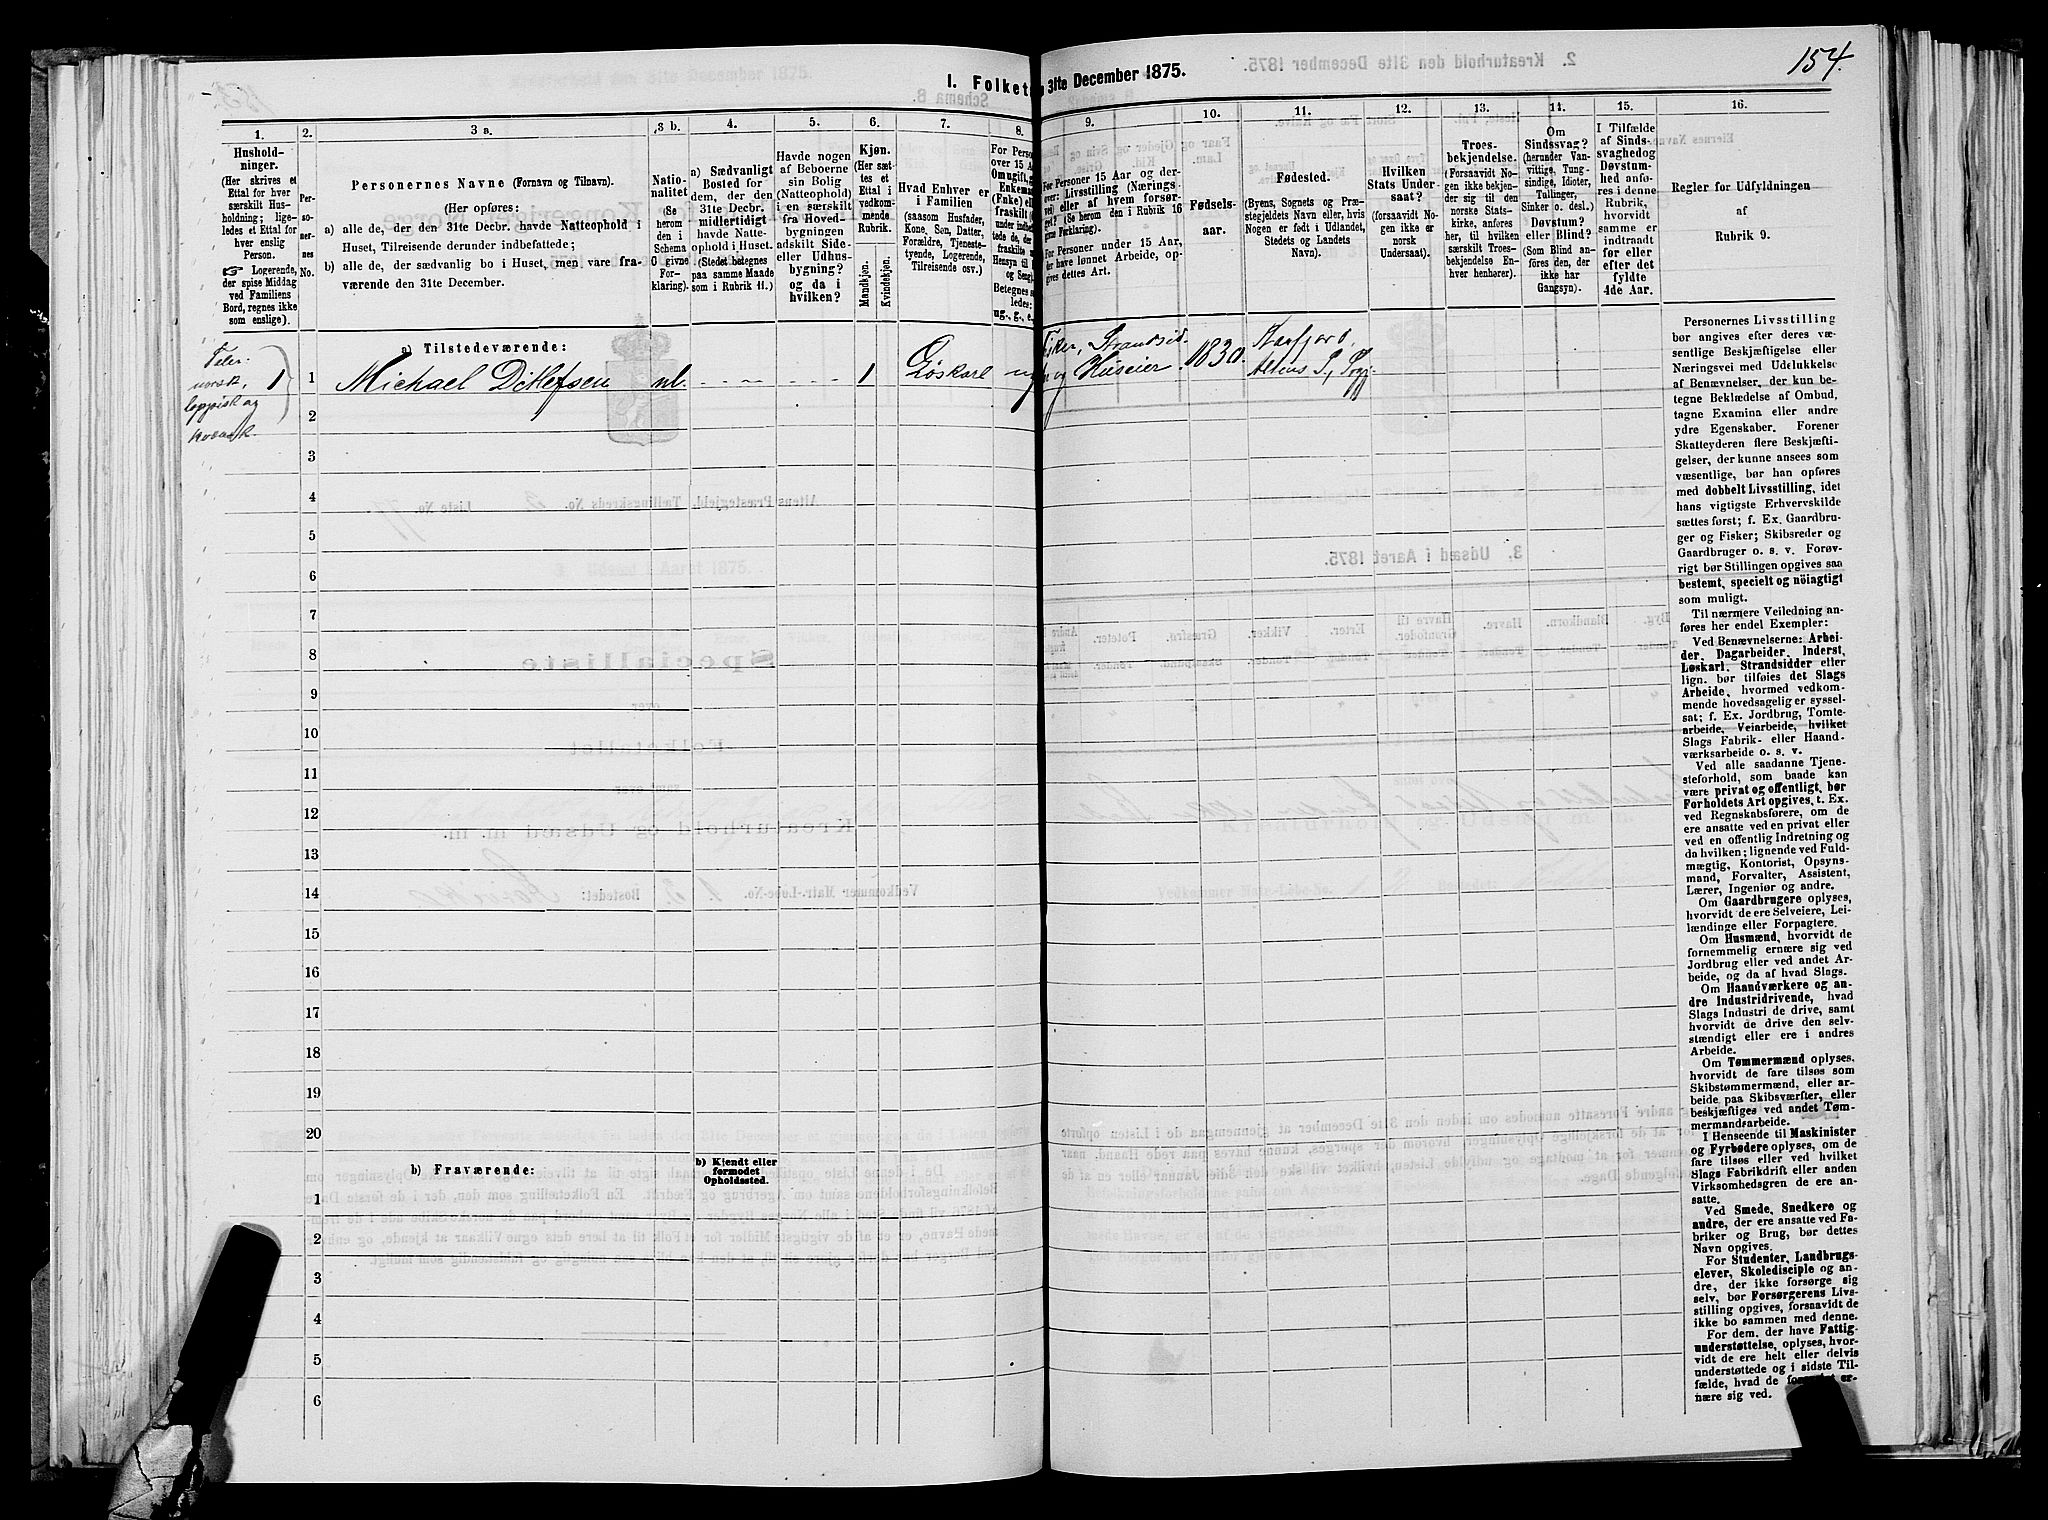 154.
I. Folket
31te December 1875.
1.
2.
3 a.
3 b.
4.
5.
6.
7.
8.
9.
10.
11.
12.
13.
14.
15.
16.
Hushold-
ninger.
(Her skrives et
Ettal for hver
særskilt Hus-
holdning; lige-
ledes et Ettal for
hver enslig
Person.
☞ Logerende,
der spise Middag
ved Familiens
Bord, regnes ikke
som enslige).
Per-
so-
ner-
nes
No.
Personernes Navne (Fornavn og Tilnavn).
(Her opføres:
a) alle de, der den 31te Decbr. havde Natteophold i
Huset, Tilreisende derunder indbefattede;
b) alle de, der sædvanlig bo i Huset, men vare fra-
værende den 31te December.
Natio-
nalitet
(Se
herom
den i
Schema
C givne
For-
klaring).
a) Sædvanligt
Bosted for
dem, der den
31te Decbr.
midlertidigt
havde Natte-
ophold i Huset.
(Stedet betegnes
paa samme Maade
som i Rubrik 11.)
Havde nogen
af Beboerne
sin Bolig
(Natteophold)
i en særskilt
fra Hoved-
bygningen
adskilt Side-
eller Udhus-
bygning?
og da i
hvilken?
Kjøn.
(Her sæt-
tes et
Ettal i
vedkom-
mende
Rubrik.
Mandkjøn.
Kvindekjøn.
Hvad Enhver er
i Familien
(saasom Husfader,
Kone, Søn, Datter,
Forældre, Tjeneste-
tyende, Logerende,
Tilreisende osv.)
For Perso
over 15 A
Omugift, 
Enkema
(Enke) el
fraskilt (
under indb
tede de,
fraskilte
Hensyn til
og Seng
Betegnes s
ledes:
ug., g., e.,
For Personer 15 Aar og der-
over: Livsstilling (Nærings-
vei) eller af hvem forsør-
get? (Se herom den i Rubrik 16
givne Forklaring).
For Personer under 15 Aar,
der have lønnet Arbeide, op-
gives dettes Art.
Fødsels-
aar.
Fødested.
(Byens, Sognets og Præ-
stegjeldets Navn eller, hvis
Nogen er født i Udlandet,
Stedets og Landets
Navn).
Hvilken
Stats Under-
saat?
(forsaavidt No-
gen ikke er
norsk
Undersaat).
Troes-
bekjendelse.
(Forsaavidt No-
gen ikke bekjen-
der sig til den
norske Stats-
kirke, anføres
her, til hvilken
særskilt Troes-
bekjendelse En-
hver henhører).
Om
Sindssvag?
(herunder Van-
vittige, Tung-
sindige, Idioter,
Tullinger,
Sinker o. desl.)
Døvstum?
eller Blind?
(Som Blind an-
føres den, der
ikke har
Gangsyn).
I Tilfælde
af Sinds-
svaghed og
Døvstum-
hed anfø-
res i denne
Rubrik,
hvorvidt
samme er
indtraadt
før eller
efter det
fyldte
4de Aar.
Regler for Udfyldningen
af
Rubrik 9.
a) Tilstedeværende:
Taler
norsk,
lappisk og
kvænsk.
1
1
Michael Ditlefsen
nl.
1
Løskarl
Fisker, Strandsid.
og Huseier
1830.
Aarfjord
Altens P, Prgj.
2
3
4
5
6
7
8
9
10
11
12
13
14
15
16
17
18
19
20
b) Fraværende:
b) Kjendt eller
formodet
Opholdssted.
1
2
3
4
5
6
Personernes Livsstilling
bør angives efter deres væ-
sentlige Beskjæftigelse eller
Næringsvei med Udelukkelse
af Benævnelser, der kun be-
tegne Beklædelse af Ombud,
tagne Examina eller andre
ydre Egenskaber. Forener
Skatteyderen flere Beskjæfti-
gelser, der kunne ansees som
væsentlige, bør han opføres
med dobbelt Livsstilling, idet
hans vigtigste Erhvervskilde
sættes først; f. Ex. Gaardbru-
ger og Fisker; Skibsreder og
Gaardbruger o. s. v. Forøv-
rigt bør Stillingen opgives saa
bestemt, specielt og nøiagtigt
som muligt.
Til nærmere Veiledning an-
føres her endel Exempler:
Ved Benævnelserne: Arbei-
der, Dagarbeider, Inderst,
Løskarl, Strandsidder eller
lign. bør tilføies det Slags
Arbeide, hvormed vedkom-
mende hovedsagelig er syssel-
sat; f. Ex. Jordbrug, Tomte-
arbeide, Veiarbeide, hvilket
Slags Fabrik- eller Haand-
værksarbeide o. s. v.
Ved alle saadanne Tjene-
steforhold, som baade kan
være privat og offentligt, bør
Forholdets Art opgives, t. Ex.
ved Regnskabsførere, om de
ere ansatte ved en privat eller
ved en offentlig Indretning og
da hvilken; lignende ved Fuld-
mægtig, Kontorist, Opsyns-
mand, Forvalter, Assistent,
Lærer, Ingeniør og andre.
Om Gaardbrugere oplyses,
hvorvidt de ere Selveiere, Lei-
lændinge eller Forpagtere.
Om Husmænd, hvorvidt de
fornemmelig ernære sig ved
Jordbrug eller ved andet Ar-
beide, og da af hvad Slags.
Om Haandværkere og an-
dre Industridrivende, hvad
Slags Industri de drive, samt
hvorvidt de drive den selv-
stændigt eller ere i andres
Arbeide.
Om Tømmermænd oplyses,
hvorvidt de fare tilsøs som
Skibstømmermænd, eller ar-
beide paa Skibsværfter, eller
beskjæftiges ved andet Tøm-
mermandsarbeide.
I Henseende til Maskinister
og Fyrbødere oplyses, om de
fare tilsøs eller ved hvilket
Slags Fabrikdrift eller anden
Virksomhedsgren de ere an-
satte.
Ved Smede, Snedkere og
andre, der ere ansatte ved Fa-
briker og Brug, bør dettes
Navn opgives.
For Studenter, Landbrugs-
elever, Skoledisciple og an-
dre, der ikke forsørge sig
selv, bør Forsørgerens Livs-
stilling opgives, forsaavidt de
ikke bo sammen med denne.
For dem, der have Fattig-
understøttelse, oplyses, hvor-
vidt de ere helt eller delvis
understøttede og i sidste Til-
fælde, hvad de er-
nære sig ved.